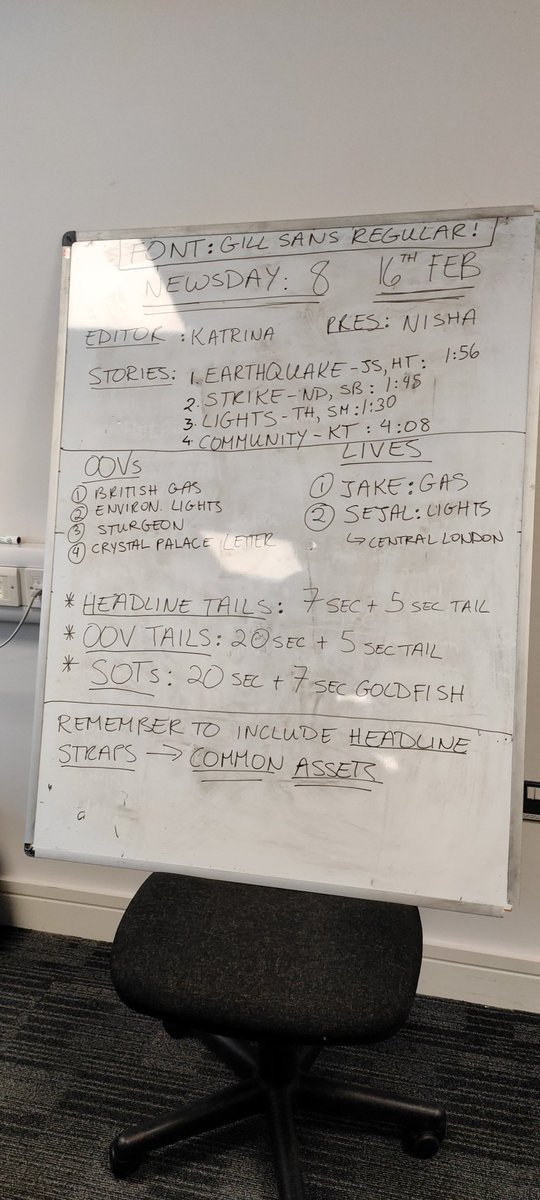 FONT: GILL SANS REGULAR!
NEWSDAY: 8 16TH FEB
EDITOR: KATRINA PRES: NISHA
STORIES: 1. EARTHQUAKE - JS, HT: 1:56
2. STRIKE - ND, SB: 1:45
3. LIGHTS - TH, SM: 1:30
4. COMMUNITY - KT: 4:08
OOVs
① BRITISH GAS
② ENVIRON. LIGHTS
③ STURGEON
④ CRYSTAL PALACE LETTER
LIVES
① JAKE: GAS
② SEJAL: LIGHTS
↳ CENTRAL LONDON
* HEADLINE TAILS: 7 SEC + 5 SEC TAIL
* OOV TAILS: 20 SEC + 5 SEC TAIL
* SOTs: 20 SEC + 7 SEC GOLDFISH
REMEMBER TO INCLUDE HEADLINE
STRAPS → COMMON ASSETS